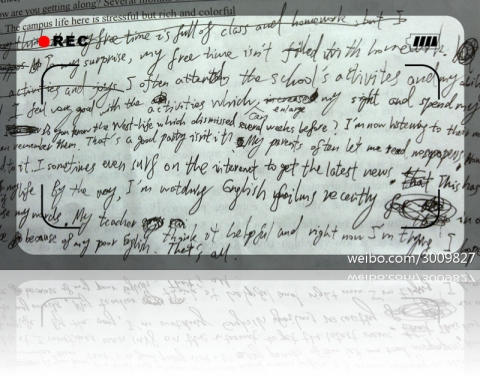 are you getting along? Several
. The campus life here is stressful but rich and colorful
REC
my free time is full of class and homework, but I
my surprise, my free time isn't filled with homework.
activities and I often attend the school's activites and my
feel very good with the activities which can enlarge my sight and spend my
Do you know the West-life which dismissed several weeks before? I'm now listening to their
remember them. That's a good party isn't it? My parents often let me read newspapers.
it. I sometimes even surf on the internet to get the latest news. This has
life. By the way, I'm watching English films recently
my words. My teacher
because of my poor English. think it helpful and right now I'm trying. I
That's all.
weibo.com/3009827